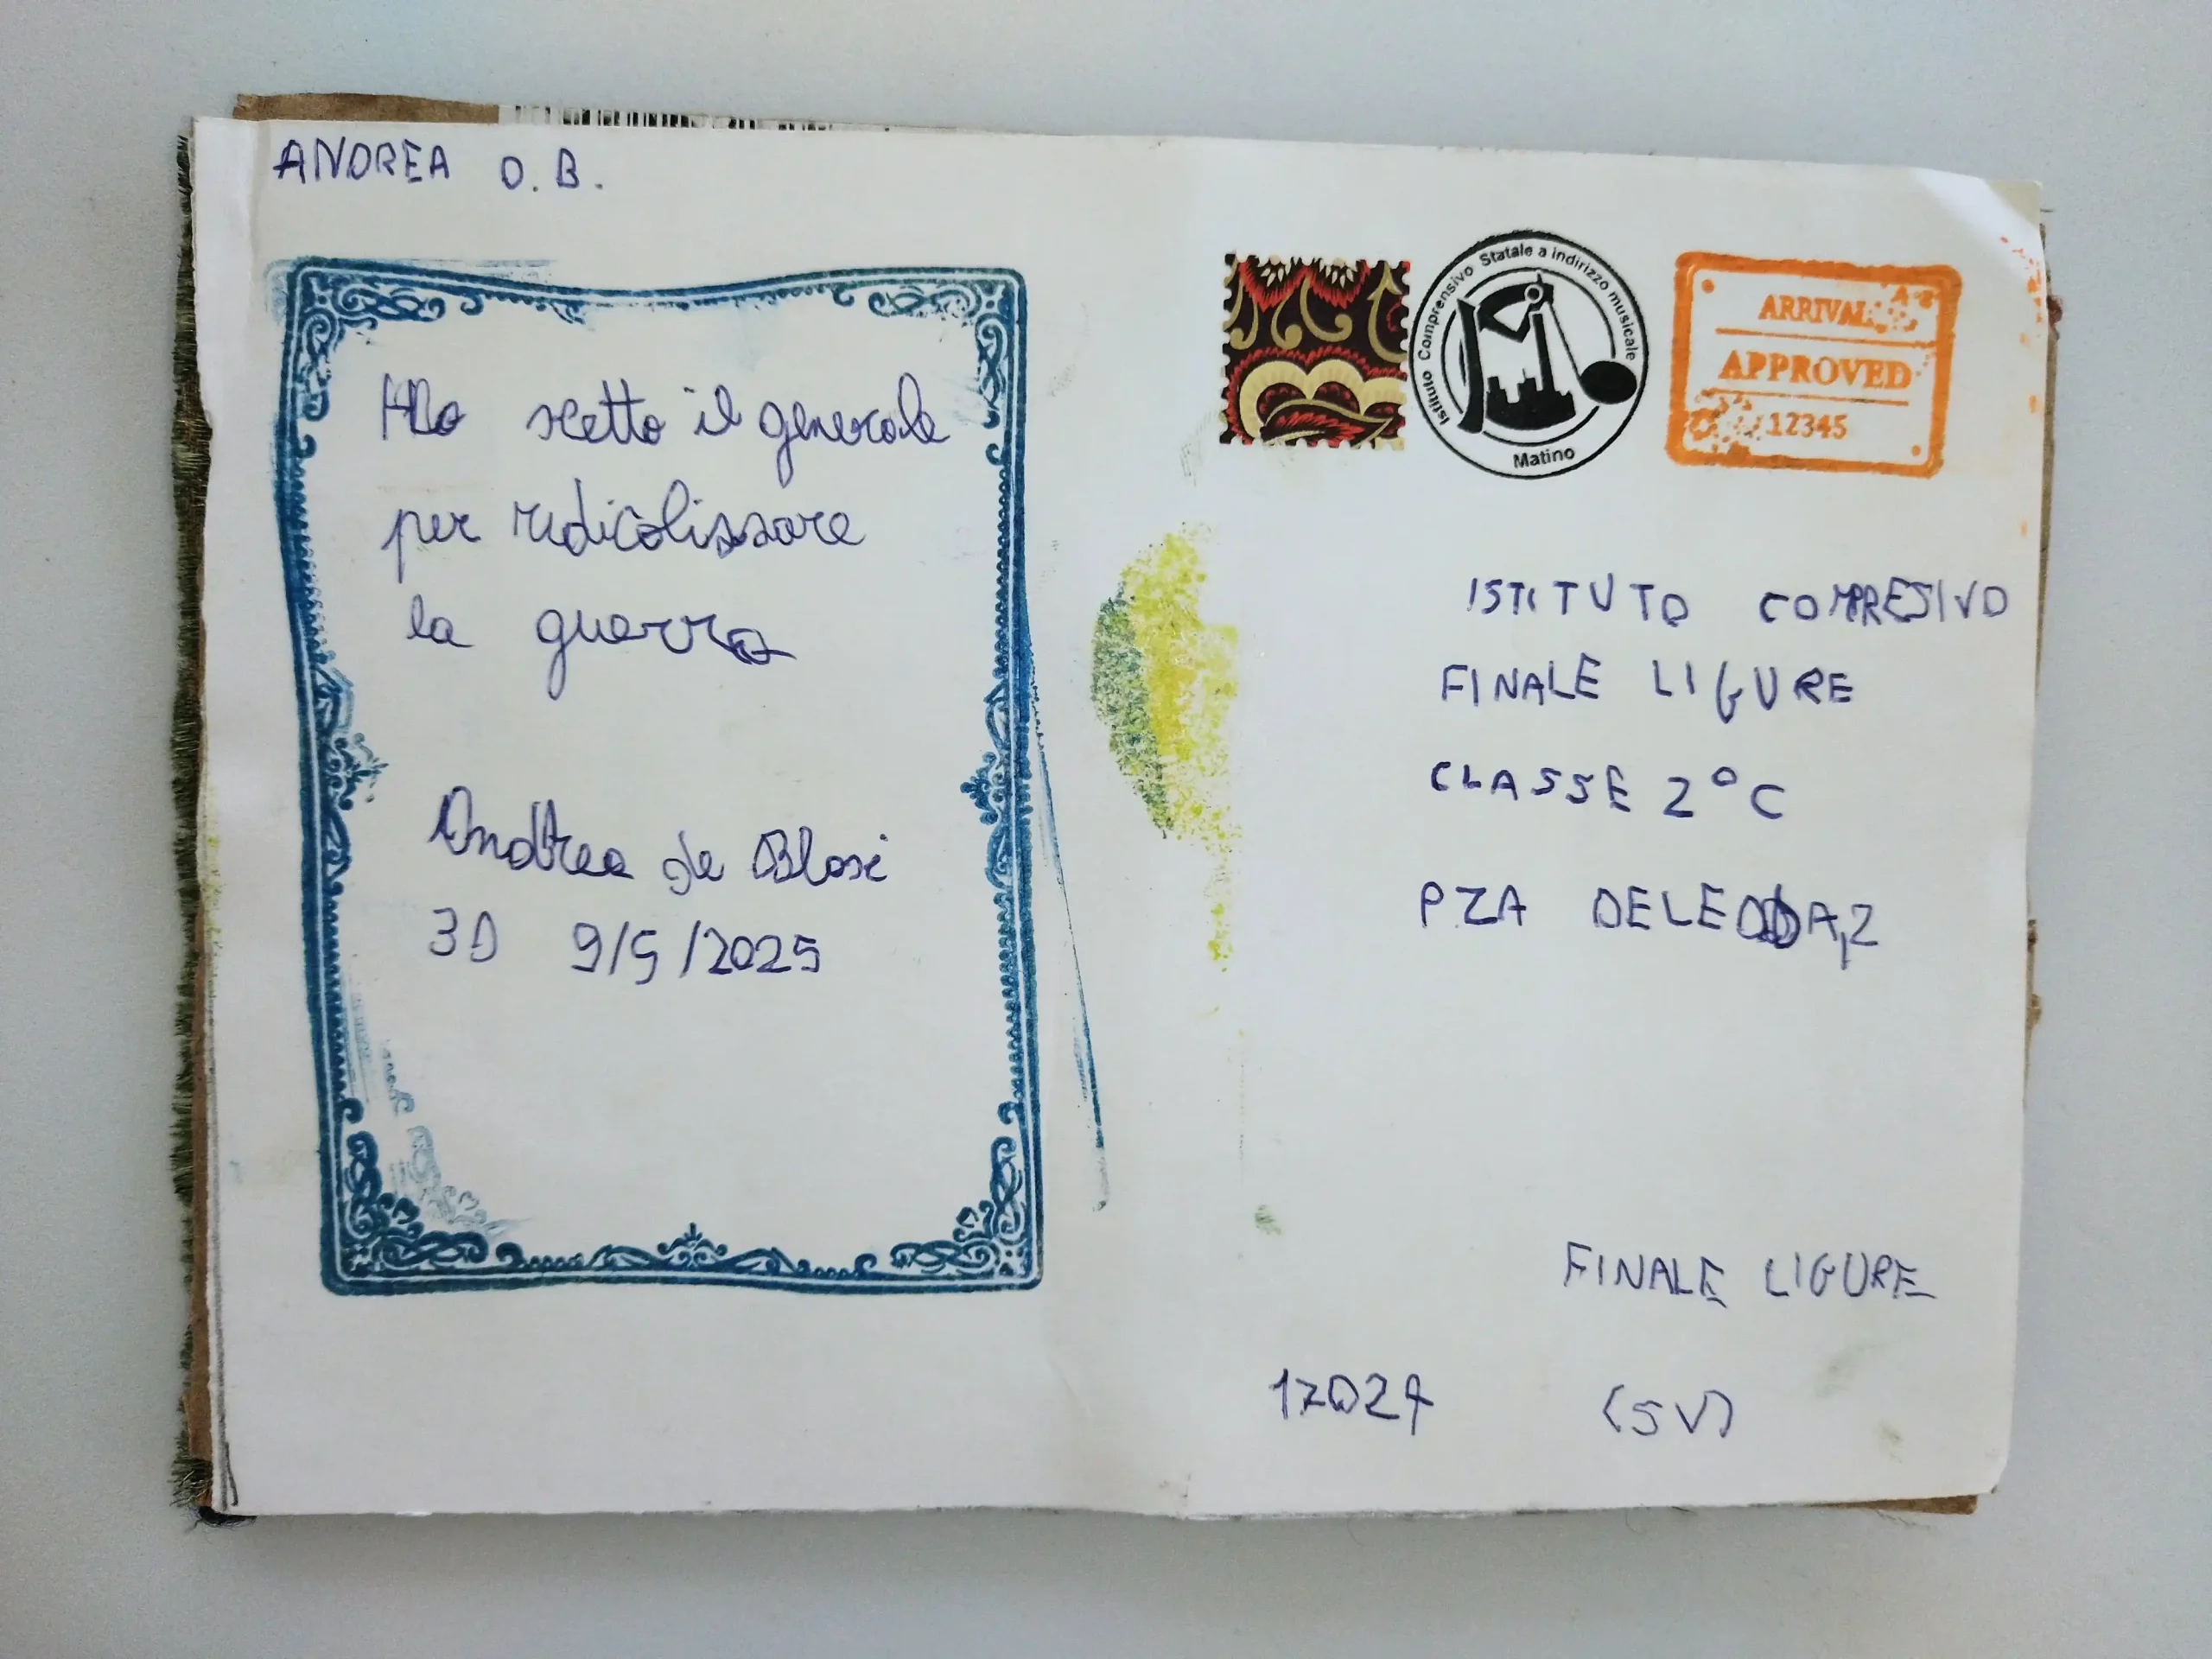 ANDREA D. B.
Ho scelto il generale
per ridicolissare
la guerra
Andrea de Blasi
3D 9/5/2025
Istituto Comprensivo Statale a indirizzo musicale
Matino
ARRIVAL
APPROVED
12345
ISTITUTO COMPRESIVO
FINALE LIGURE
CLASSE 2°C
PZA DELEDDA,2
FINALE LIGURE
17024 (SV)